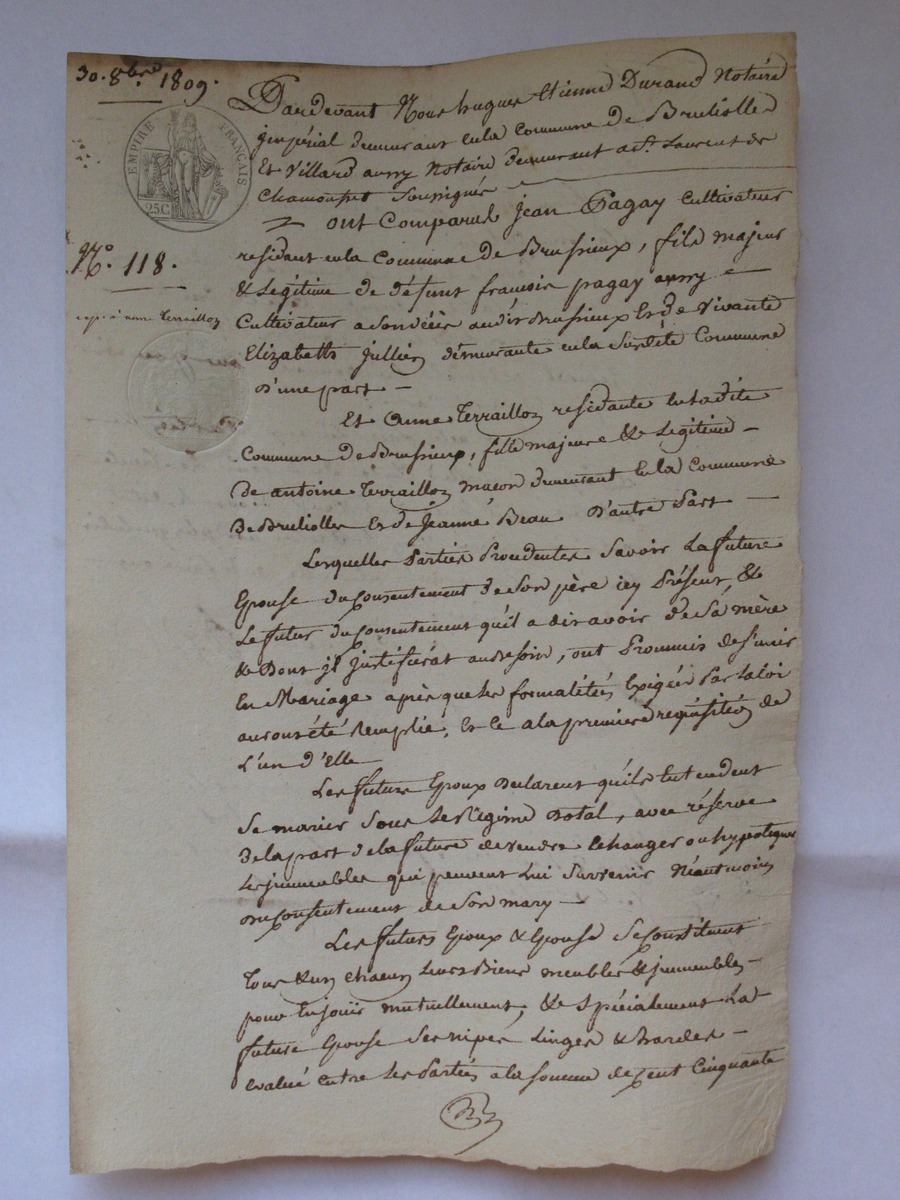 30. 8bre. 1809.
EMPIRE FRANÇAIS
25C
N.° 118.
exp. à anne Terraillon
Pardevant Nous hugues Etienne Durand Notaire
jmpérial demeurant en la Commune de Brullioles
Et Villard aussy Notaire demeurant a St. Laurent de
Chamousset Soussignés
ont Comparus Jean Pagay Cultivateur
residant en la Commune de Brussieux, fils majeur
& Légitime de défunt francois pagay aussy
Cultivateur a son décès audit Brussieux Et de Vivante
Elizabeth Jullien démurante en la Susdite Commune
d'une part —
Et Anne Terraillon residante en ladite
Commune de Brussieux, fille majeure & Legitime —
De antoine Terraillon macon demeurant En la Commune
De Brullioles Et de Jeanne Beau D'autre Part —
Lesquelles Parties Procedentes Savoir La future
Epouse du Consentement de Son père icy Présent, &
Le futur du Consentement qu'il a dit avoir de Sa mère
& Dont jl justifierat au besoin, ont Prommis de S'unir
En Mariage après que les formalités Exigées Par la loi
auront été Remplie, Et ce a la premiere réquisition de
L'un d'elle
Les futurs Epoux Déclarent qu'ils Entendent
Se marier Sous Le Régime Dotal, avec réserve
De la part de la future de vendre Echanger ou hypotéquer
Les jmmeubles qui peuvent Lui Survenir Néantmoins
du Consentement de Son mary —
Les futurs Epoux & Epouse Se Constituent
Tous & un chacun Leurs Biens meubles & jmmeubles —
pour En jouir mutuellement, & Spécialement La
future Epouse Ses nipes Linges & hardes —
Evalué Entre Les Parties a la Somme de Cent Cinquante